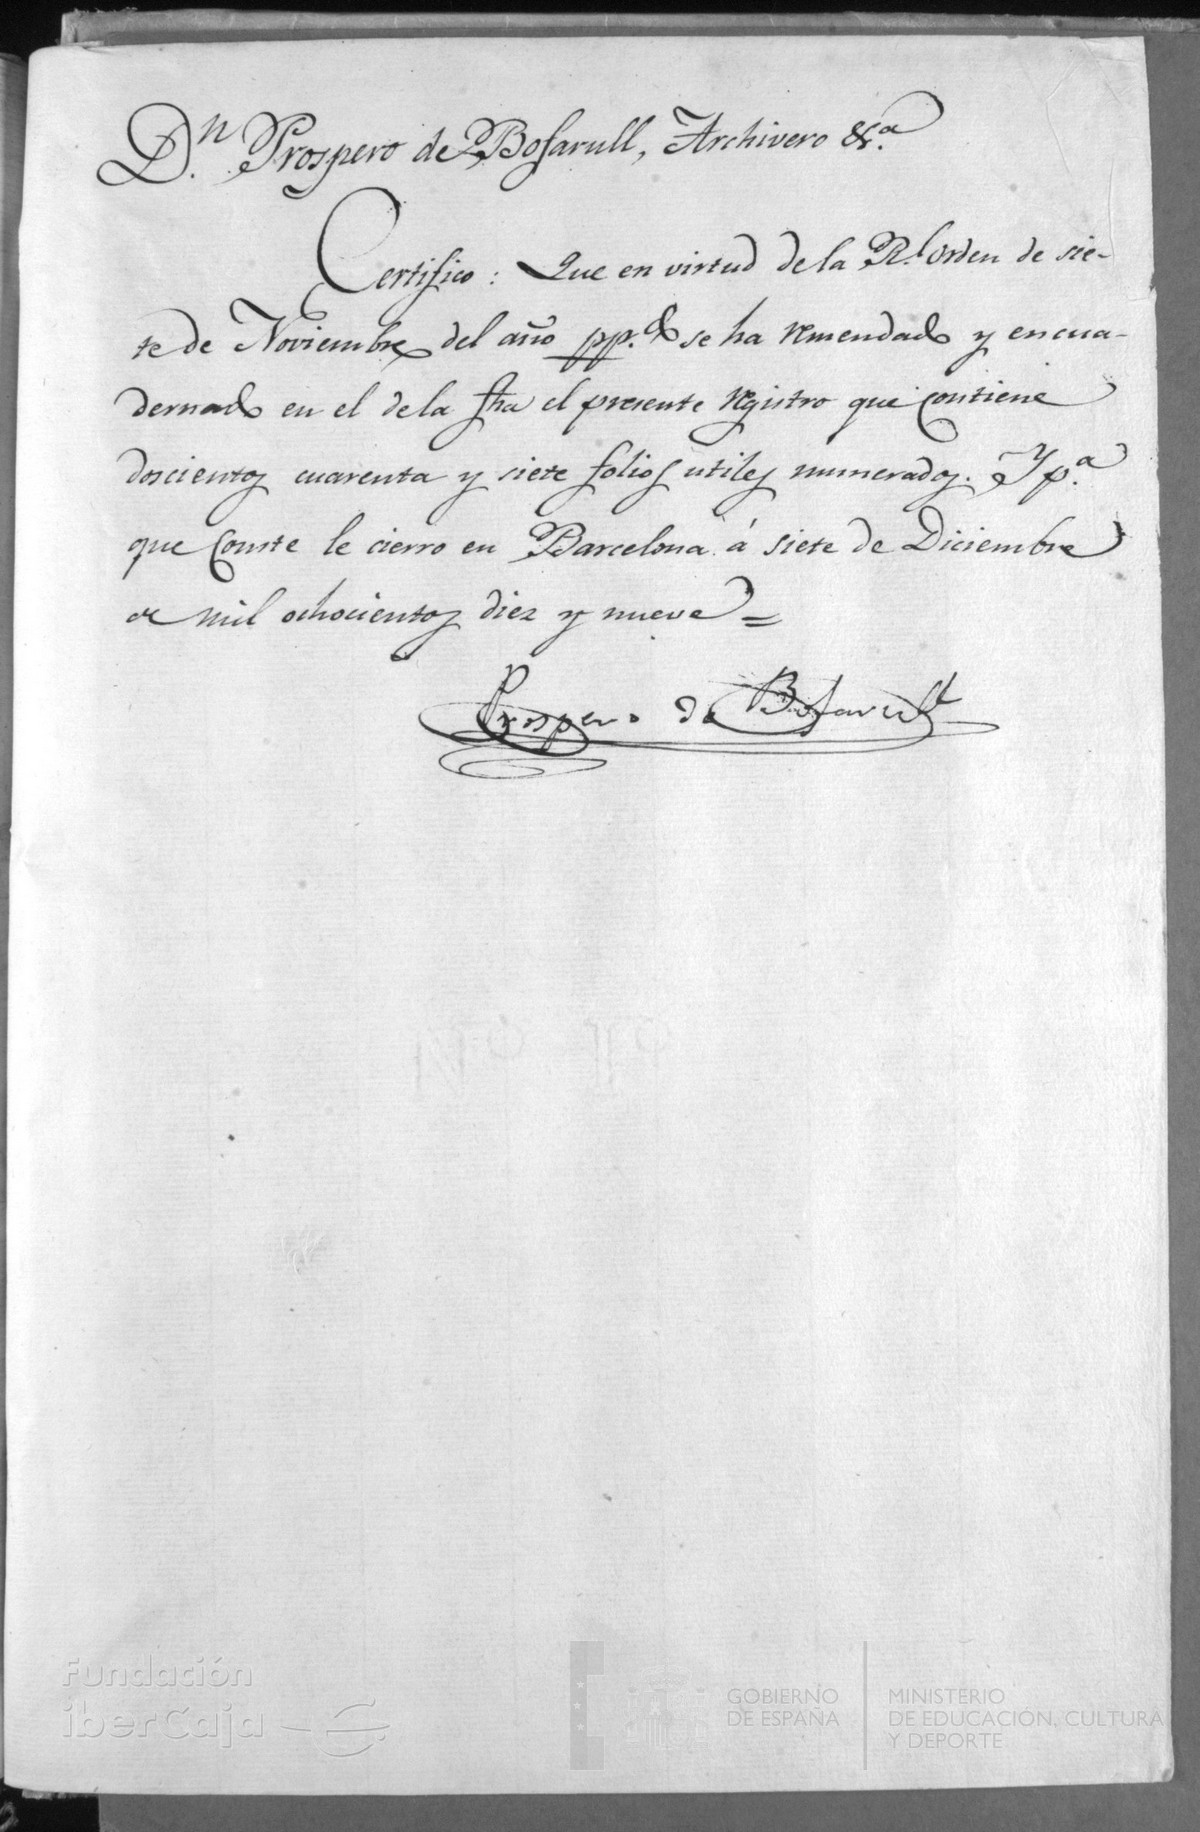 D.n Prospero de Bofarull, Archivero &c.a
Certifico: Que en virtud de la R.l orden de sie-
te de Noviembre del año pp.do se ha remendado y encua-
dernado en el de la fha el presente registro que contiene
doscientos cuarenta y siete folios utiles numerados. Y p.a
que conste le cierro en Barcelona á siete de Diciembre
de mil ochocientos diez y nueve =
Prospero de Bofarull
Fundación
iberCaja
GOBIERNO
DE ESPAÑA
MINISTERIO
DE EDUCACIÓN, CULTURA
Y DEPORTE